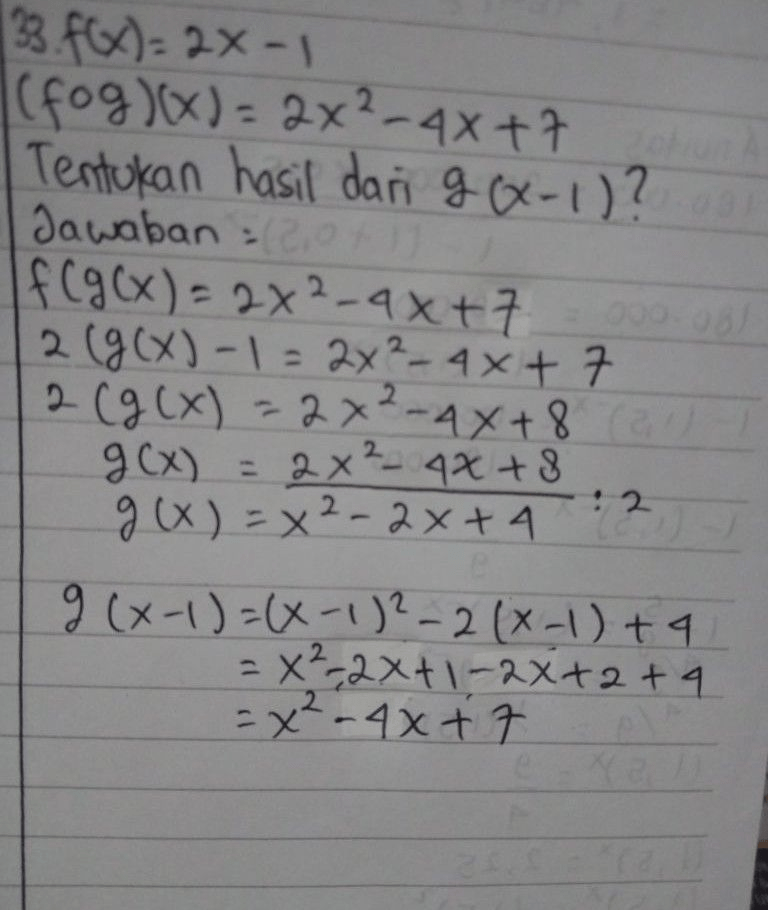 33. f(x) = 2x - 1
(fog)(x) = 2x² - 4x + 7
Tentukan hasil dari g(x-1)?
Jawaban =
f(g(x) = 2x² - 4x + 7
2(g(x) - 1 = 2x² - 4x + 7
2(g(x) = 2x² - 4x + 8
g(x) = 2x² - 4x + 8 : 2
g(x) = x² - 2x + 4
g(x-1) = (x-1)² - 2(x-1) + 4
= x² - 2x + 1 - 2x + 2 + 4
= x² - 4x + 7